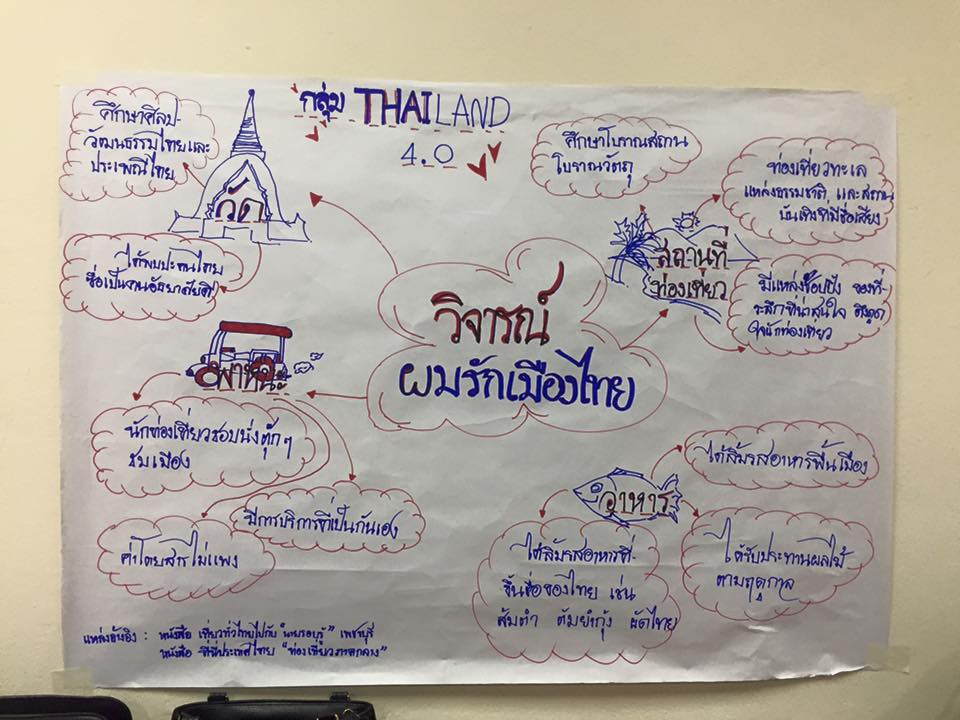 กลุ่ม THAILAND
4.0
ศึกษาศิลป-
วัฒนธรรมไทยและ
ประเพณีไทย
วัด
ได้พบปะคนไทย
ซึ่งเป็นงานอัธยาศัยดี
ศึกษาโบราณสถาน
โบราณวัตถุ
ท่องเที่ยวทะเล
แหล่งธรรมชาติ และสถาน
บันเทิงที่มีชื่อเสียง
สถานที่
ท่องเที่ยว
มีแหล่งช็อปปิ้ง ของที่-
ระลึกที่น่าสนใจ ดึงดูด
ใจนักท่องเที่ยว
วิจารณ์
ผมรักเมืองไทย
พาหนะ
นักท่องเที่ยวชอบนั่งตุ๊ก ๆ
ชมเมือง
มีการบริการที่เป็นกันเอง
ค่าโดยสารไม่แพง
อาหาร
ได้ลิ้มรสอาหารพื้นเมือง
ได้ลิ้มรสอาหารที่-
ขึ้นชื่อของไทย เช่น
ส้มตำ ต้มยำกุ้ง ผัดไทย
ได้รับประทานผลไม้
ตามฤดูกาล
แหล่งอ้างอิง : หนังสือ เที่ยวทั่วไทยไปกับ "นายรอบรู้" เพชรบุรี
หนังสือ ที่นี่ประเทศไทย "ท่องเที่ยวภาคกลาง"